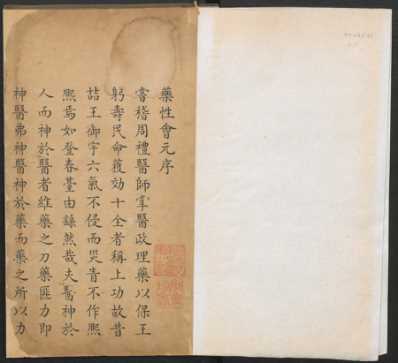 藥性會元序
嘗稽周禮醫師掌醫政理藥以保王
躬壽民命穫効十全者稱上功故昔
喆王御宇六氣不侵而災眚不作熙
熙焉如登春臺由繇然哉夫醫神於
人而神於醫者維藥之力藥匪力即
神醫弗神醫神於藥而藥之所以力